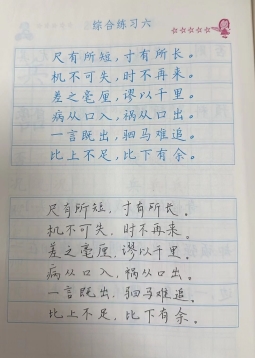 综合练习六
尺有所短，寸有所长。
机不可失，时不再来。
差之毫厘，谬以千里。
病从口入，祸从口出。
一言既出，驷马难追。
比上不足，比下有余。
尺有所短，寸有所长。
机不可失，时不再来。
差之毫厘，谬以千里。
病从口入，祸从口出。
一言既出，驷马难追。
比上不足，比下有余。